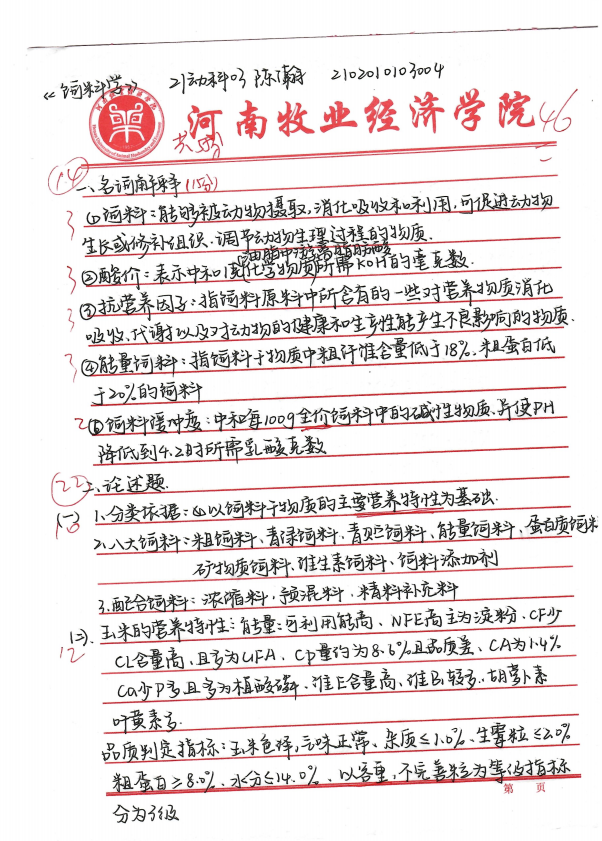 《饲料学》 21动科03 陈瀚 2102010103004
河南牧业经济学院 46
共55分
14
一、名词解释(15分)
3 ①饲料：能够被动物摄取，消化吸收和利用，可促进动物
生长或修补组织、调节动物生理过程的物质.
油脂中游离脂肪酸
3 ②酸价：表示中和1克(化学物质)所需KOH的毫克数.
3 ③抗营养因子：指饲料原料中所含有的一些对营养物质消化
吸收、代谢以及对动物的健康和生产性能产生不良影响的物质.
3 ④能量饲料：指饲料干物质中粗纤维含量低于18%，粗蛋白低
于20%的饲料
2 ⑤饲料缓冲度：中和每100g全价饲料中的碱性物质、并使PH
降低到4.2时所需乳酸克数
22 二、论述题.
(一) 1.分类依据：以饲料干物质的主要营养特性为基础.
10 2.八大饲料：粗饲料、青绿饲料、青贮饲料、能量饲料、蛋白质饲料
矿物质饲料、维生素饲料、饲料添加剂
3.配合饲料：浓缩料、预混料、精料补充料
(二). 玉米的营养特性：能量：可利用能高、NFE高主为淀粉、CF少
12 CL含量高，且多为UFA、CP量约为8.6%且品质差、CA为1.4%
Ca少P多且多为植酸磷、维E含量高、维B1较多、胡萝卜素
叶黄素多.
品质判定指标：玉米色泽，气味正常、杂质≤1.0%、生霉粒≤2.0%
粗蛋白≥8.0%、水分≤14.0%、以容重，不完善粒为等级指标
第 页
分为3级